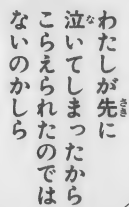 わたしが先に
泣いてしまったから
こらえられたのでは
ないのかしら